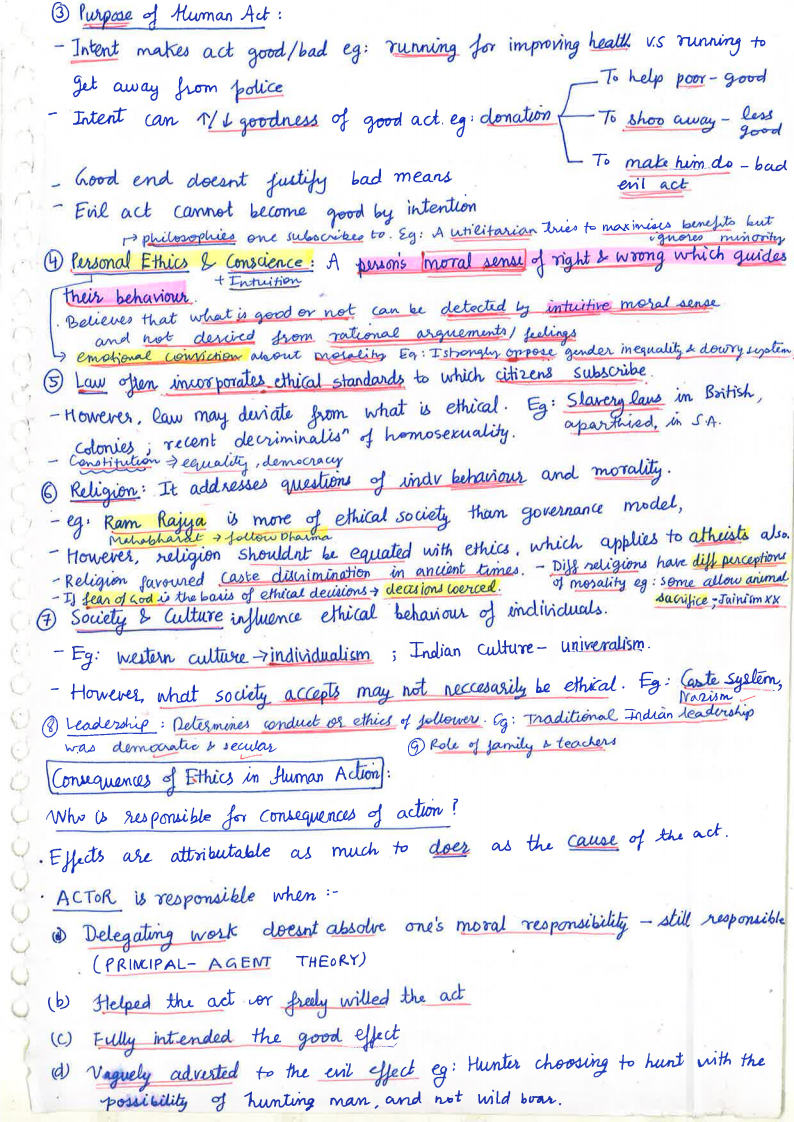 ③ Purpose of Human Act :
- Intent makes act good/bad eg: running for improving health v.s running to
get away from police
→ To help poor - good
- Intent can ↑/↓ goodness of good act. eg: donation
To shoo away - less good
To make him do - bad
evil act
- Good end doesnt justify bad means
- Evil act cannot become good by intention
↱ philosophies one subscribes to. Eg: A utilitarian tries to maximises benefits but
ignores minority
④ Personal Ethics & Conscience : A person's moral sense of right & wrong which guides
+ Intuition
their behaviour.
. Believes that what is good or not can be detected by intuitive moral sense
and not derived from rational arguements / feelings
↳ emotional conviction about morality Eg: I strongly oppose gender inequality & dowry system
⑤ Law often incorporates ethical standards to which citizens subscribe.
- However, law may deviate from what is ethical. Eg: Slavery laws in British,
colonies ; recent decriminalisⁿ of homosexuality. aparthied, in S.A.
- Constitution → equality, democracy
⑥ Religion : It addresses questions of indv behaviour and morality.
- eg: Ram Rajya is more of ethical society than governance model,
Mahabharat → follow Dharma
- However, religion shouldnt be equated with ethics, which applies to atheists also.
- Religion favoured caste discrimination in ancient times. - Diff religions have diff perceptions
of morality eg: some allow animal
- If fear of God is the basis of ethical decisions → decisions coerced.
sacrifice ; Jainism xx
⑦ Society & Culture influence ethical behaviour of individuals.
- Eg: western culture → individualism ; Indian Culture - univeralism.
- However, what society accepts may not neccesarily be ethical. Eg: Caste system,
Nazism
⑧ Leadership : Determines conduct or ethics of follower. Eg: Traditional Indian leadership
was democratic & secular ⑨ Role of family & teachers
Consequences of Ethics in Human Action :
Who is responsible for consequences of action ?
. Effects are attributable as much to doer as the cause of the act.
. ACTOR is responsible when :-
(a) Delegating work doesnt absolve one's moral responsibility - still responsible
(PRINCIPAL - AGENT THEORY)
(b) Helped the act or freely willed the act
(c) Fully intended the good effect
(d) Vaguely adverted to the evil effect eg: Hunter choosing to hunt with the
possibility of hunting man, and not wild boar.